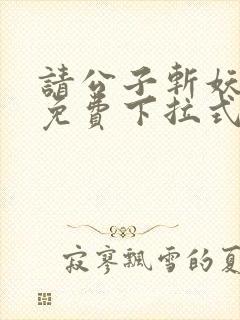 請公子斬妖
免費下拉式
寂寥飄雪的夏